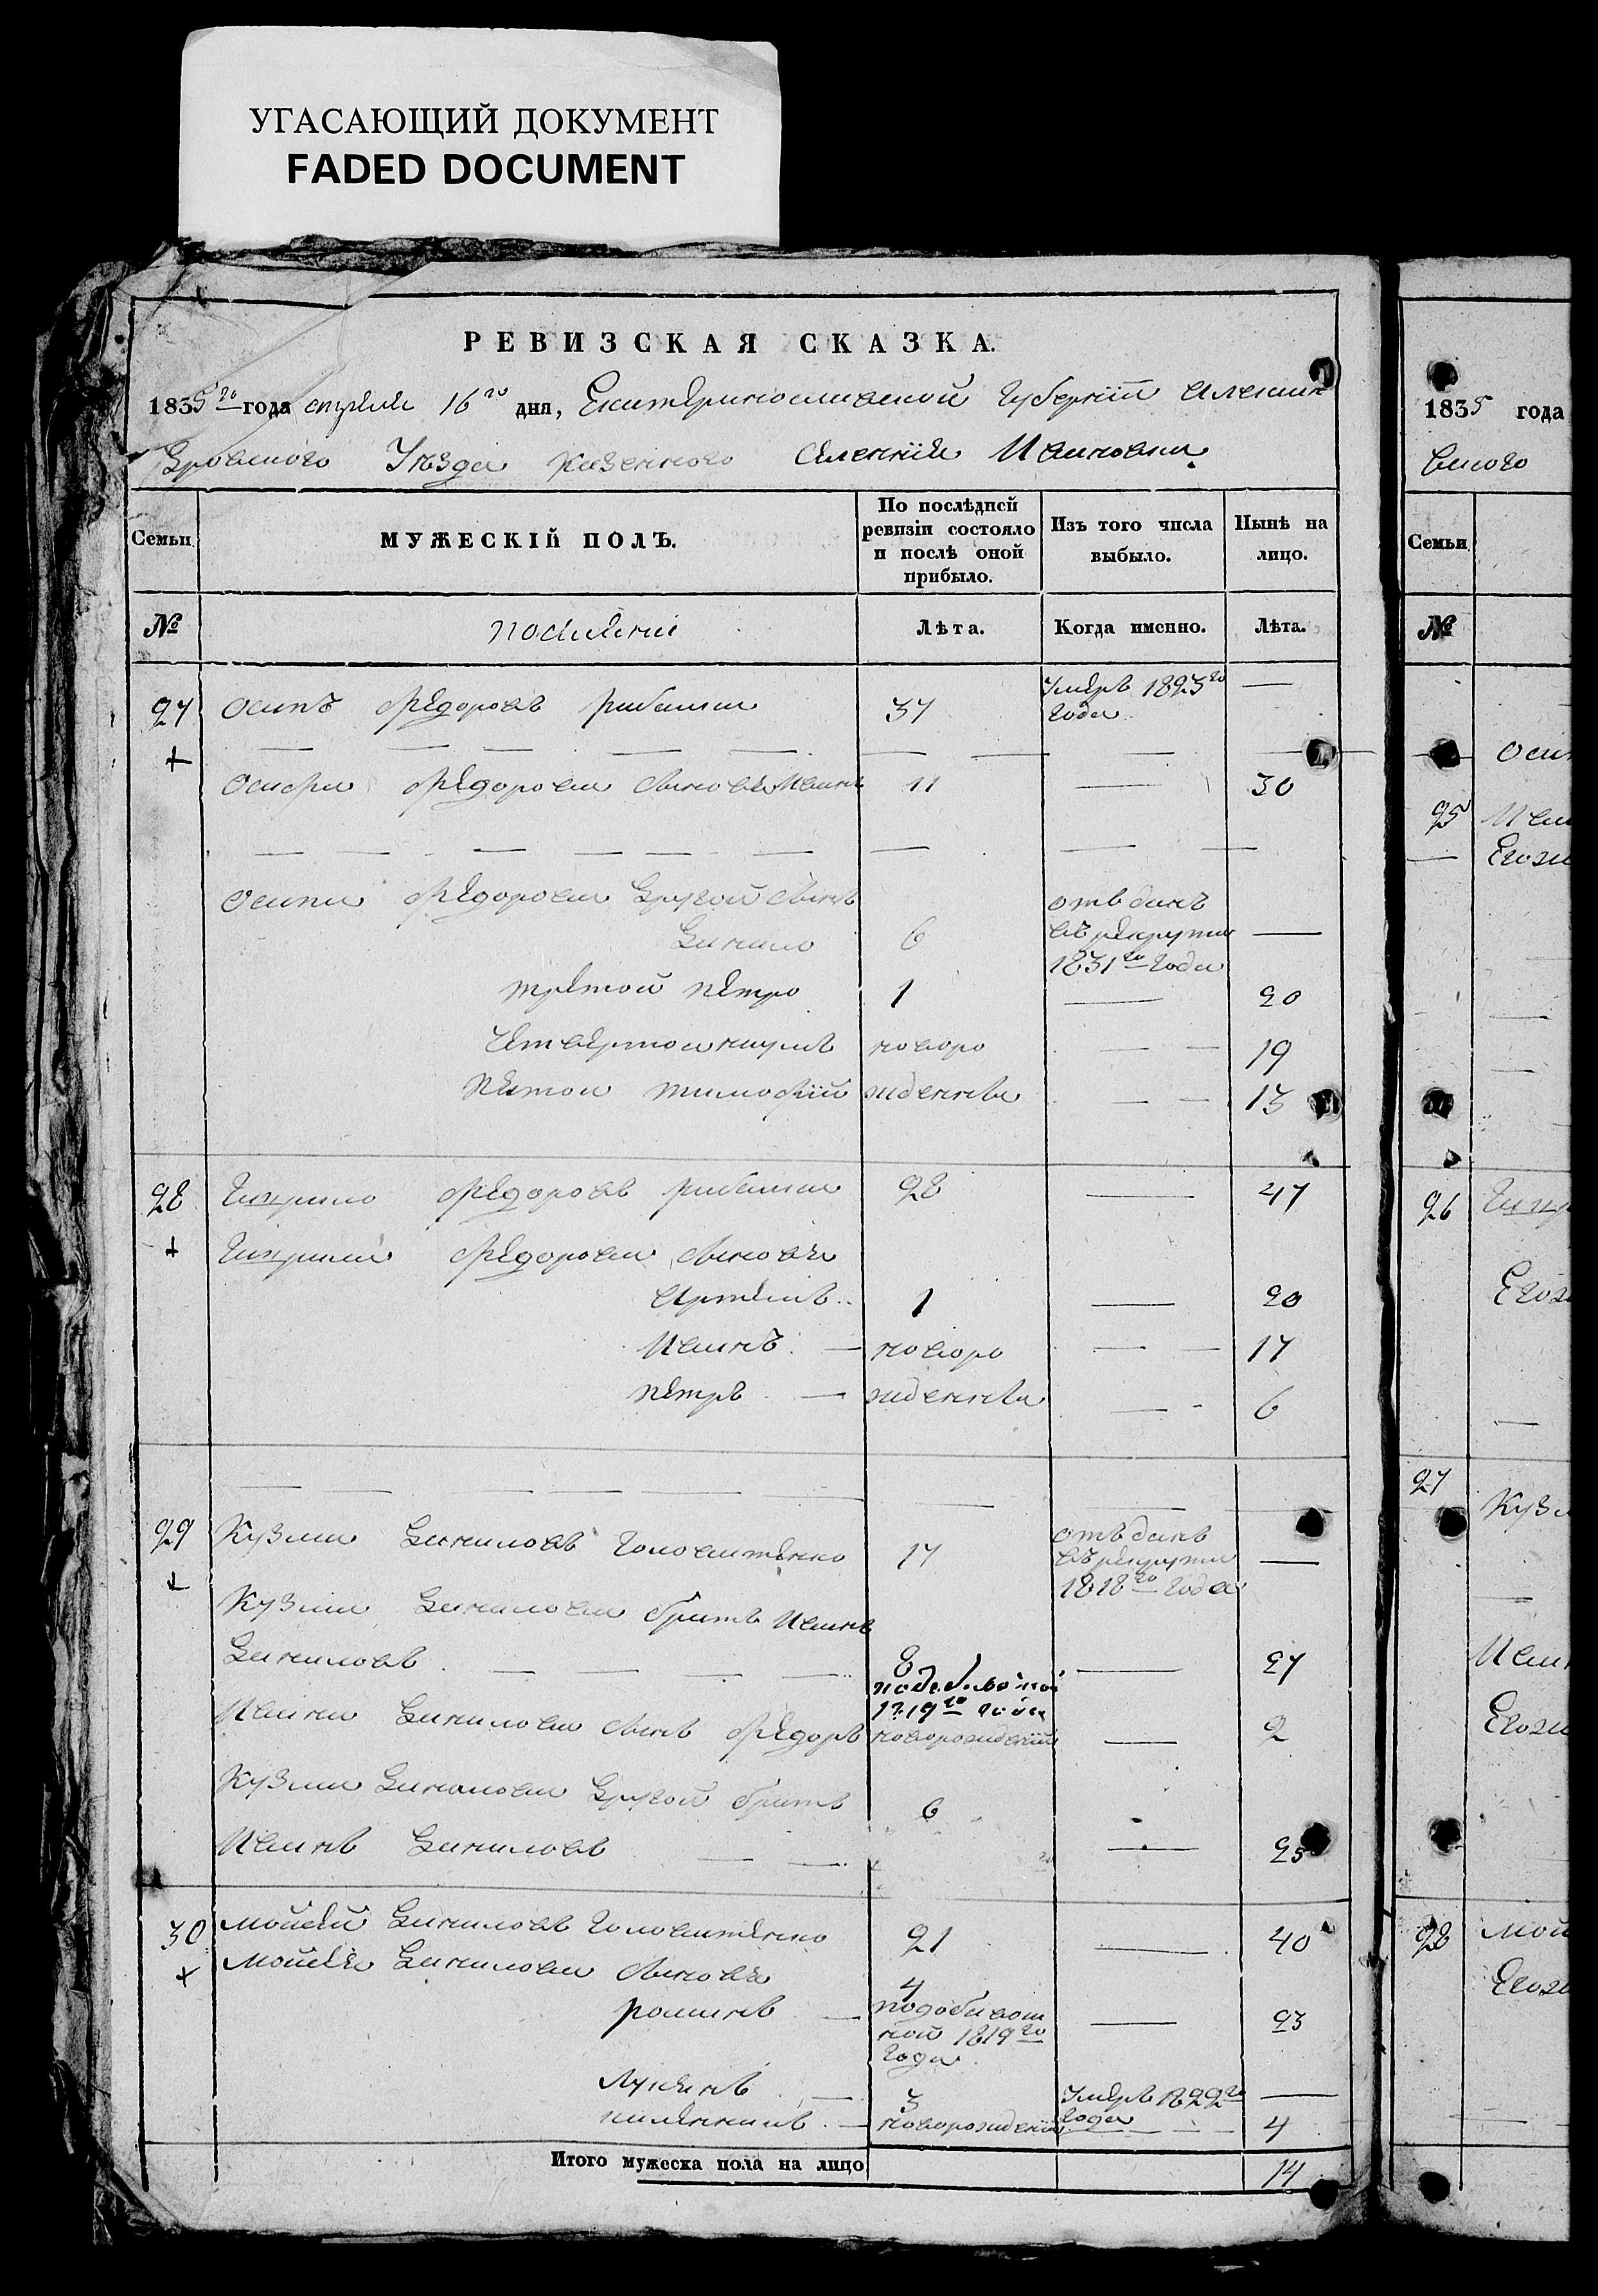 УГАСАЮЩИЙ ДОКУМЕНТ
FADED DOCUMENT
РЕВИЗСКАЯ СКАЗКА.
1835го года апреля 16го дня, Екатеринославской Губернии Алексан
Дровского Уезда Казенного Селения Ивановки
Семьи
МУЖЕСКІЙ ПОЛЪ.
По послѣдней ревизіи состояло и послѣ оной прибыло.
Изъ того числа выбыло.
Нынѣ на лицо.
№
поселяне
Лѣта.
Когда именно.
Лѣта.
27 Осипъ Федоровъ рибалка 37 Умеръ 1823го года —
Федорова Синовя Иванъ 11 — 30
Осипа Федорова Другой Синъ
Данило 6 отъданъ въ рекруты 1831го года —
третой петро 1 — 20
Четвертои наумъ новоро — — 19
пятои тимофій жденныя — — 13
28 Гаврило Федоровъ рибалка 28 — 47
Гаврили Федорова Синовя
Артемъ 1 — 20
Иванъ — новоро — — 17
петръ — жденныя — - 6
29 Кузма Даниловъ Головатенко 17 отъданъ въ рекруты 1818го года —
Кузми Данилова братъ Иванъ
Даниловъ 8 1819го года — 27
Ивана Данилова Синъ Федоръ новорожденій — 2
Кузми Данилова Другой братъ 6
Иванъ Даниловъ — 25
30 Мойсей Даниловъ Головатенко 21 — 40
Мойсея Данилова Синовя
романъ — 4 подобавоч ной 1819го года — 23
Лукянъ — 3 Умеръ 1822го года —
— новорожденій — 4
Итого мужеска пола на лицо 14
1835 года
вского
Семьи
№
25
26
27
28